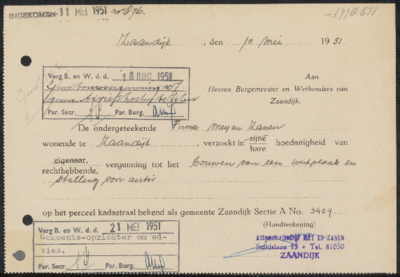 INGEKOMEN 11 MEI 1951 no 676.
Zaandijk, den 10 Mei 1951
Verg B. en W. d.d. 18 JUNI 1951
Par. Secr. Par. Burg.
Aan
Heeren Burgemeester en Wethouders van
Zaandijk.
De ondergeteekende Firma Mey en Zanen
wonende te Zaandijk, verzoekt in zijne hoedanigheid van
hare
eigenaar, vergunning tot het bouwen van een werkplaats en
rechthebbende.
stalling voor auto's
op het perceel kadastraal bekend als gemeente Zaandijk Sectie A No. 3404
(Handteekening)
Verg B. en W. d.d. 21 MEI 1951
Gemeente-opzichter om ad-
vies.
Par. Secr. Par. Burg.
MEY EN ZANEN
ZAANDIJK